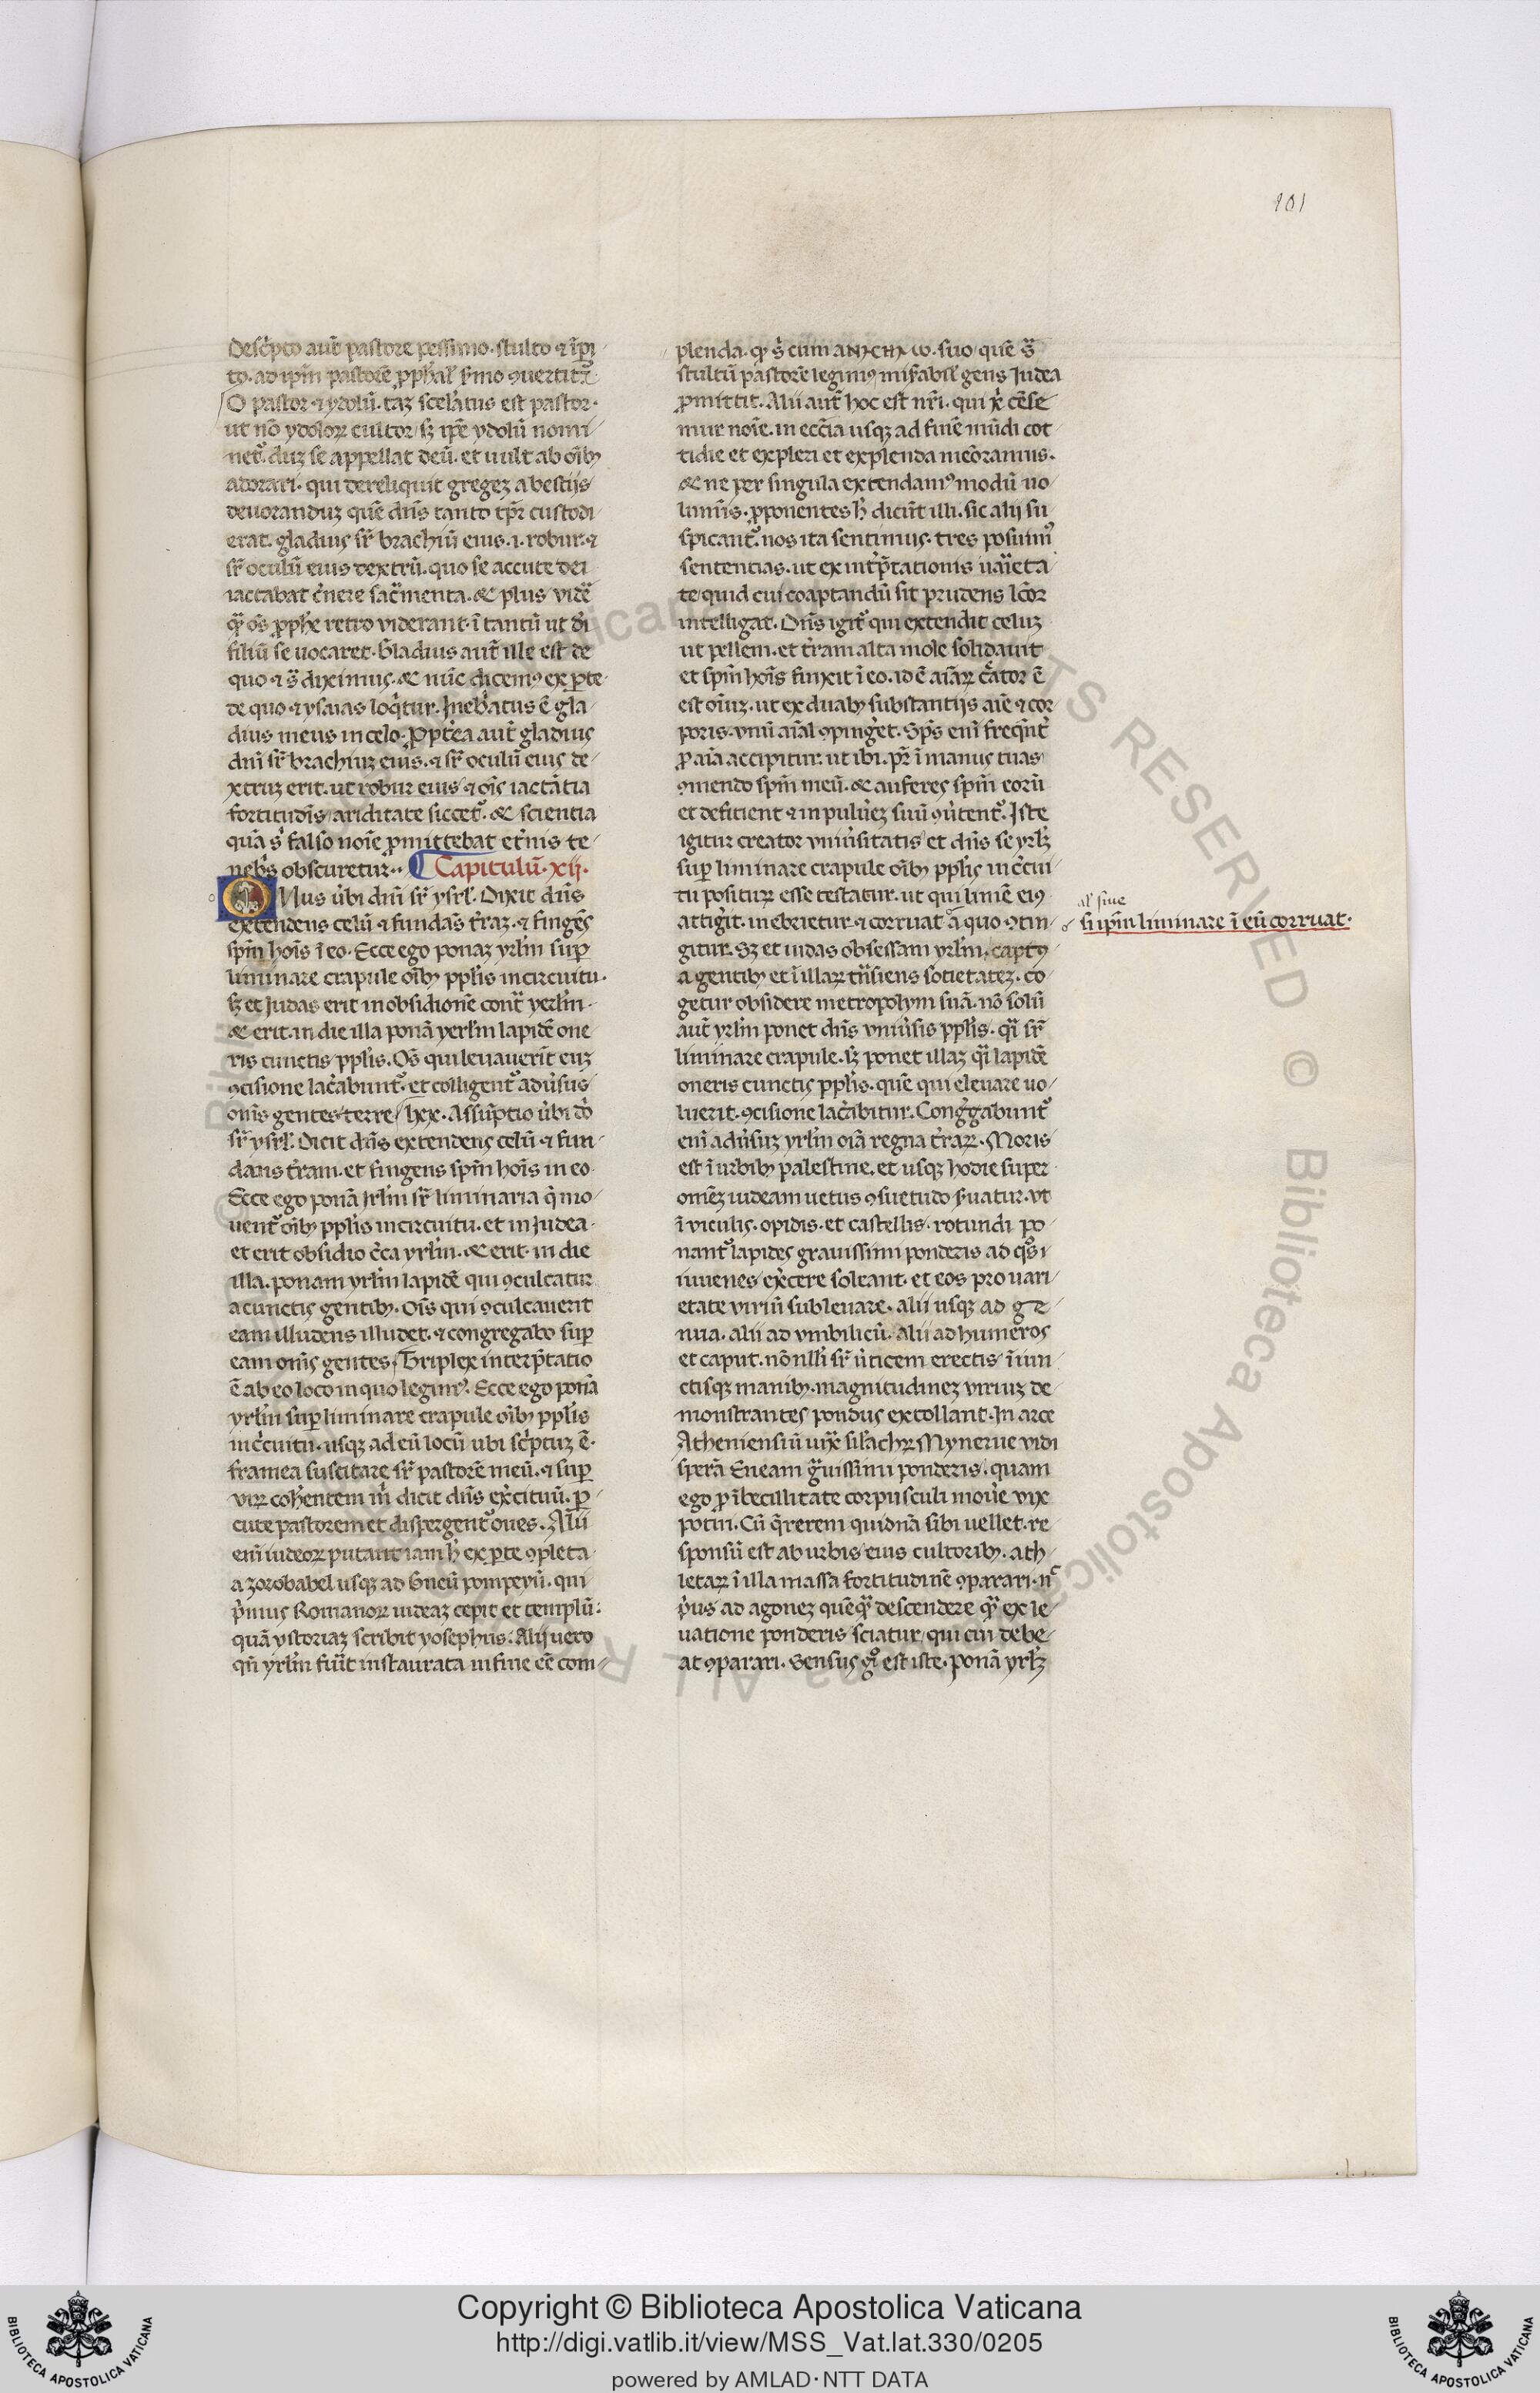 101
Desc̾pto aut̃ pastore pessimo. stulto ⁊ ĩpi/
to. ad ipm̃ pastorẽ ꝓphãl' s̾mo ꝯuertitᷣ.
O pastor ⁊ ydolũ. taꝫ scel̾atus est pastor.
ut nõ ydoloꝝ cultor/ sꝫ ip̃e ydolũ nomi/
netᷣ. duꝫ se appellat deũ. et uult ab oĩbꝫ
adorari. qui dereliquit gregeꝫ a bestijs
deuoranduꝫ quẽ dñs tanto tp̃r custodi
erat. gladius sr̃ brachiũ eius .i. robur. ⁊
sr̃ oculũ eius dextrũ. quo se accute dei
iactabat c̾nere sac̃menta. & plus vide᷑
qᷓ oẽs ꝓphe retro viderant. ĩ tantũ ut di
filiũ se uocaret. Gladius aut̃ ille est de
quo ⁊ s̾ diximus. & nũc dicemꝰ ex ꝑte
de quo ⁊ ysaias loq̾tur. Inebr̾atus ẽ gla/
dius meus in celo. Ꝓpt̾ea aut̃ gladius
dñi sr̃ brachiuꝫ eius. ⁊ sr̃ oculũ eius de/
xtruꝫ erit. ut robur eius ⁊ oĩs iactãtia
fortitudĩs/ ariditate siccetᷣ. & scientia
quã s̾ falso noĩe ꝓmittebat et̾nis te/
neb̾s obscuretur.. Capitulũ .xij.
ONus ũbi dñi sr̃ ysrl'. Dixit dñs
extendens celũ ⁊ fundãs t̾raꝫ. ⁊ fingẽs
spm̃ hoĩs ĩ eo. Ecce ego ponaꝫ yrlm̃ suꝑ
liminare crapule oĩbꝫ ppl̃is in circuitu.
sꝫ et Judas erit in obsidionẽ cont̾ yerlm̃.
& erit. in die illa ponã yerlm̃ lapidẽ one
ris cunctis ppl̃is. Oẽs qui leuauerĩt euꝫ
ꝯcisione lac̾abuntᷣ. et colligentᷣ adũsus
om̃s gentes terre/ lxx. Assũptio ũbi dñi
sr̃ ysrl'. Dicit dñs extendens celũ ⁊ fun/
dans t̾ram. et fingens spm̃ hoĩs in eo.
Ecce ego ponã Irlm̃ sr̃ liminaria q̾ mo/
uentᷣ oĩbꝫ ppl̃is in circuitu. et in Judea.
et erit obsidio c̾ca yrlm̃. & erit. in die
illa. ponam yrlm̃ lapidẽ qui ꝯculcatur
a cunctis gentibꝫ. Oĩs qui ꝯculcauerit
eam illudens illudet. ⁊ congregabo suꝑ
eam om̃s gentes/ Triplex interp̃tatio
ẽ ab eo loco in quo legimꝰ. Ecce ego ponã
yrlm̃ suꝑ liminare crapule oĩbꝫ ppl̃is
in c̾cuitu. usqꝫ ad eũ locũ ubi sc̾ptuꝫ ẽ.
framea suscitare sr̃ pastorẽ meũ. ⁊ suꝑ
viꝝ coh̾entem m̃ dicit dñs ex̾cituũ. ꝑ
cute pastorem et dispergentᷣ oues. Alii
em̃ iudeoꝝ putant iam h̾ ex ꝑte ꝯpleta
a zorobabel usqꝫ ad Gneũ pompeyũ. qui
p̾mus Romanoꝝ iudeaꝫ cepit et templũ.
quã ystoriaꝫ scribit yosephus. Alij uero
qñ yrlm̃ fuĩt instaurata in fine eẽ com/
plenda. qꝫ s̾ cum ΑΗΧΟΜΕΝΩ suo/ quẽ s̾
stultũ pastorẽ legimꝰ mis̾abil' gens Judea
ꝓmittit. Alii aut̃ hoc est nr̃i. qui xp̃i cẽse
mur noĩe. in ecc̃ia usqꝫ ad finẽ mũdi cot
tidie et expleri et explenda meõramus.
& ne per singula extendamꝰ modũ uo/
luminis. ꝓponentes h̾ dicũt illi. sic alij su
spicantᷣ. nos ita sentimus. tres posuimꝰ
sentencias. ut ex int̾p̃tationis uaĩeta
te quid cui coaptandũ sit prudens lc̃or
intelligat. Dñs igitᷣ qui extendit celuꝫ
ut pellem. et t̾ram alta mole solidauit
et spm̃ hoĩs finxit ĩ eo. id ẽ aĩaꝝ c̾ator ẽ
est oĩuꝫ. ut ex duabꝫ substantijs aĩe ⁊ cor
poris. vnũ aĩal ꝯping̾et. Sp̃s em̃ freq̾nt̾
ꝓ aĩa accipitur. ut ibi. pr̃ ĩ manus tuas
ꝯmendo spm̃ meũ. & auferes spm̃ eorũ
et deficient ⁊ in pulũeꝫ suũ ꝯũtentᷣ. Iste
igitur creator vniũsitatis et dñs se yrlꝫ
suꝑ liminare crapule oĩbꝫ ppl̃is in c̾cui
tu posituꝝ esse testatur. ut qui limẽ eiꝰ
attig̾it. inebrietur ⁊ corruat ã quo ꝯtin/
gitur. Sꝫ et iudas obsessam yrlm̃. captꝰ
a gentibꝫ et ĩ illaꝝ tñsiens societateꝫ. co/
getur obsidere metropolym suã. nõ solũ
aut̃ yrlm̃ ponet dñs vniũsis ppl̃is. qᷓi sr̃
liminare crapule. sꝫ ponet illaꝫ qᷓi lapidẽ
oneris cunctis ppl̃is. quẽ qui eleuare uo/
luerit. ꝯcisione lac̾abitur. Cong̾gabuntᷣ
em̃ adũsuꝫ yrlm̃ oĩa regna t̾raꝝ. Moris
est ĩ urbibꝫ palestine. et usqꝫ hodie super
om̃eꝫ iudeam uetus ꝯsuetudo s̾uatur. vt
ĩ viculis. opidis. et castellis. rotundi po/
nantᷣ lapides grauissimi ponderis ad qᵒs i
iuuenes ex̾cere soleant. et eos pro uari/
etate viriũ subleuare. alii usqꝫ ad ge/
nua. alii ad vmbilicũ. alii ad humeros
et caput. nõnlli sr̃ ũticem erectis ĩ iun/
ctisqꝫ manibꝫ. magnitudineꝫ viriuꝫ de/
monstrantes pondus extollant. In arce
Atheniensiũ iuxᷓ sil'achꝝ Mynerue vidi
sperã Eneam gᷓuissimi ponderis. quam
ego ꝓ ĩbecillitate corpusculi moũe vix
potui. Cũ q̾rerem quidnã sibi uellet. re
sponsũ est ab urbis eius cultoribꝫ. ath/
letaꝝ ĩ illa massa fortitudinẽ ꝯparari. nͨ
p̾us ad agoneꝫ quẽqᷓ descendere qᷓ ex le/
uatione ponderis sciatur/ qui cui debe/
at ꝯparari. Sensus gͦ est iste. Ponã yrlꝫ
al' siue
si ipm̃ liminare ĩ eũ corruat.
Copyright © Biblioteca Apostolica Vaticana
http://digi.vatlib.it/view/MSS_Vat.lat.330/0205
powered by AMLAD·NTT DATA